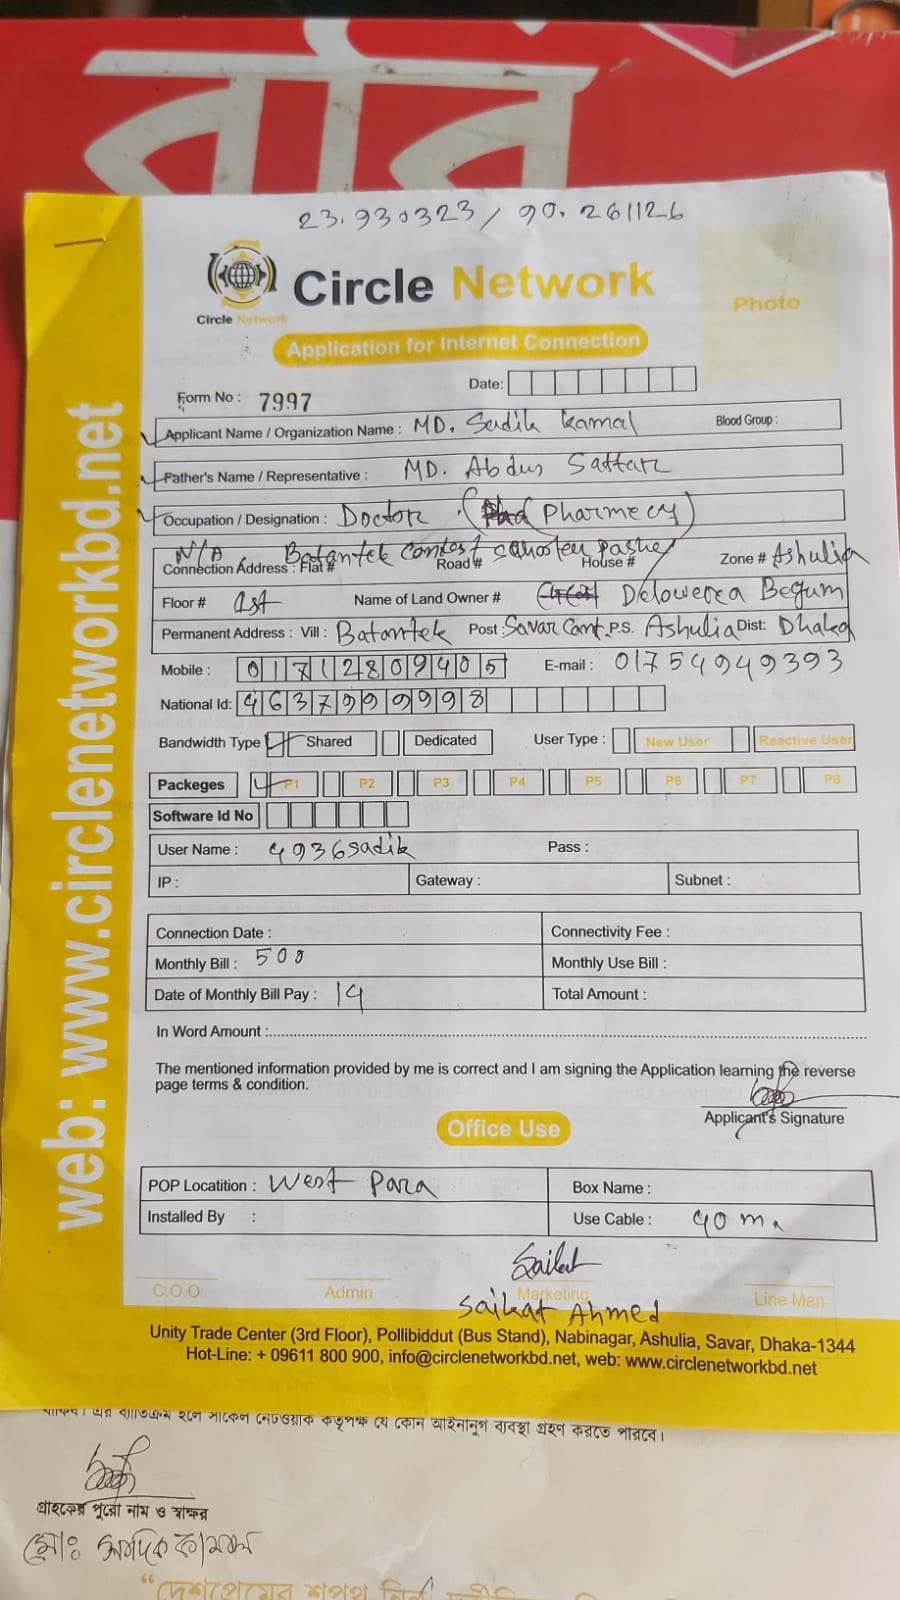 বারি
23.930323 / 90.261126
Circle Network
Circle Network
Photo
Application for Internet Connection
Date:
Form No : 7997
Applicant Name / Organization Name : MD. Sadik kamal Blood Group :
Father's Name / Representative : MD. Abdus Sattar
Occupation / Designation : Doctor (Pharmecy)
N/A Batantek Contest pashe
Connection Address : Flat # Road # House # Zone # Ashulia
Floor # 1st Name of Land Owner # Delowerea Begum
Permanent Address : Vill : Batantek Post : Savar Cant. P.S. Ashulia Dist: Dhaka
Mobile : 01712809405 E-mail : 01754949393
National Id: 4637999998
Bandwidth Type Shared Dedicated User Type : New User Reactive User
Packeges P1 P2 P3 P4 P5 P6 P7 P8
Software Id No
User Name : 4936sadik Pass :
IP : Gateway : Subnet :
Connection Date : Connectivity Fee :
Monthly Bill : 500 Monthly Use Bill :
Date of Monthly Bill Pay : 14 Total Amount :
In Word Amount :
The mentioned information provided by me is correct and I am signing the Application learning the reverse
page terms & condition.
Applicant's Signature
Office Use
POP Locatition : West Para Box Name :
Installed By : Use Cable : 40 m.
Saikat
C.O.O Admin Marketing Line Man
Saikat Ahmed
Unity Trade Center (3rd Floor), Pollibiddut (Bus Stand), Nabinagar, Ashulia, Savar, Dhaka-1344
Hot-Line: + 09611 800 900, info@circlenetworkbd.net, web: www.circlenetworkbd.net
web: www.circlenetworkbd.net
থাকিব। এর ব্যতিক্রম হলে সার্কেল নেটওয়ার্ক কতৃপক্ষ যে কোন আইনানুগ ব্যবস্থা গ্রহণ করতে পারবে।
গ্রাহকের পুরো নাম ও স্বাক্ষর
মোঃ সাদিক কামাল
“দেশপ্রেমের শপথ নিন